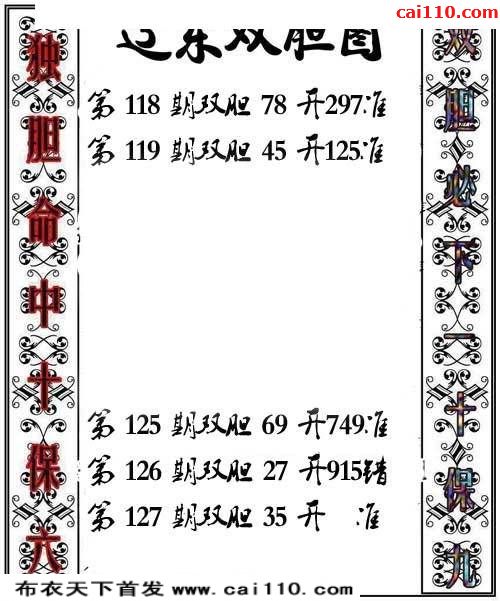 cai110.com
辽东双胆图
独胆命中十保六
第 118 期双胆 78 开297准
第 119 期双胆 45 开125准
第 125 期双胆 69 开749准
第 126 期双胆 27 开915错
第 127 期双胆 35 开 准
双胆必下一十保九
布衣天下首发 www.cai110.com